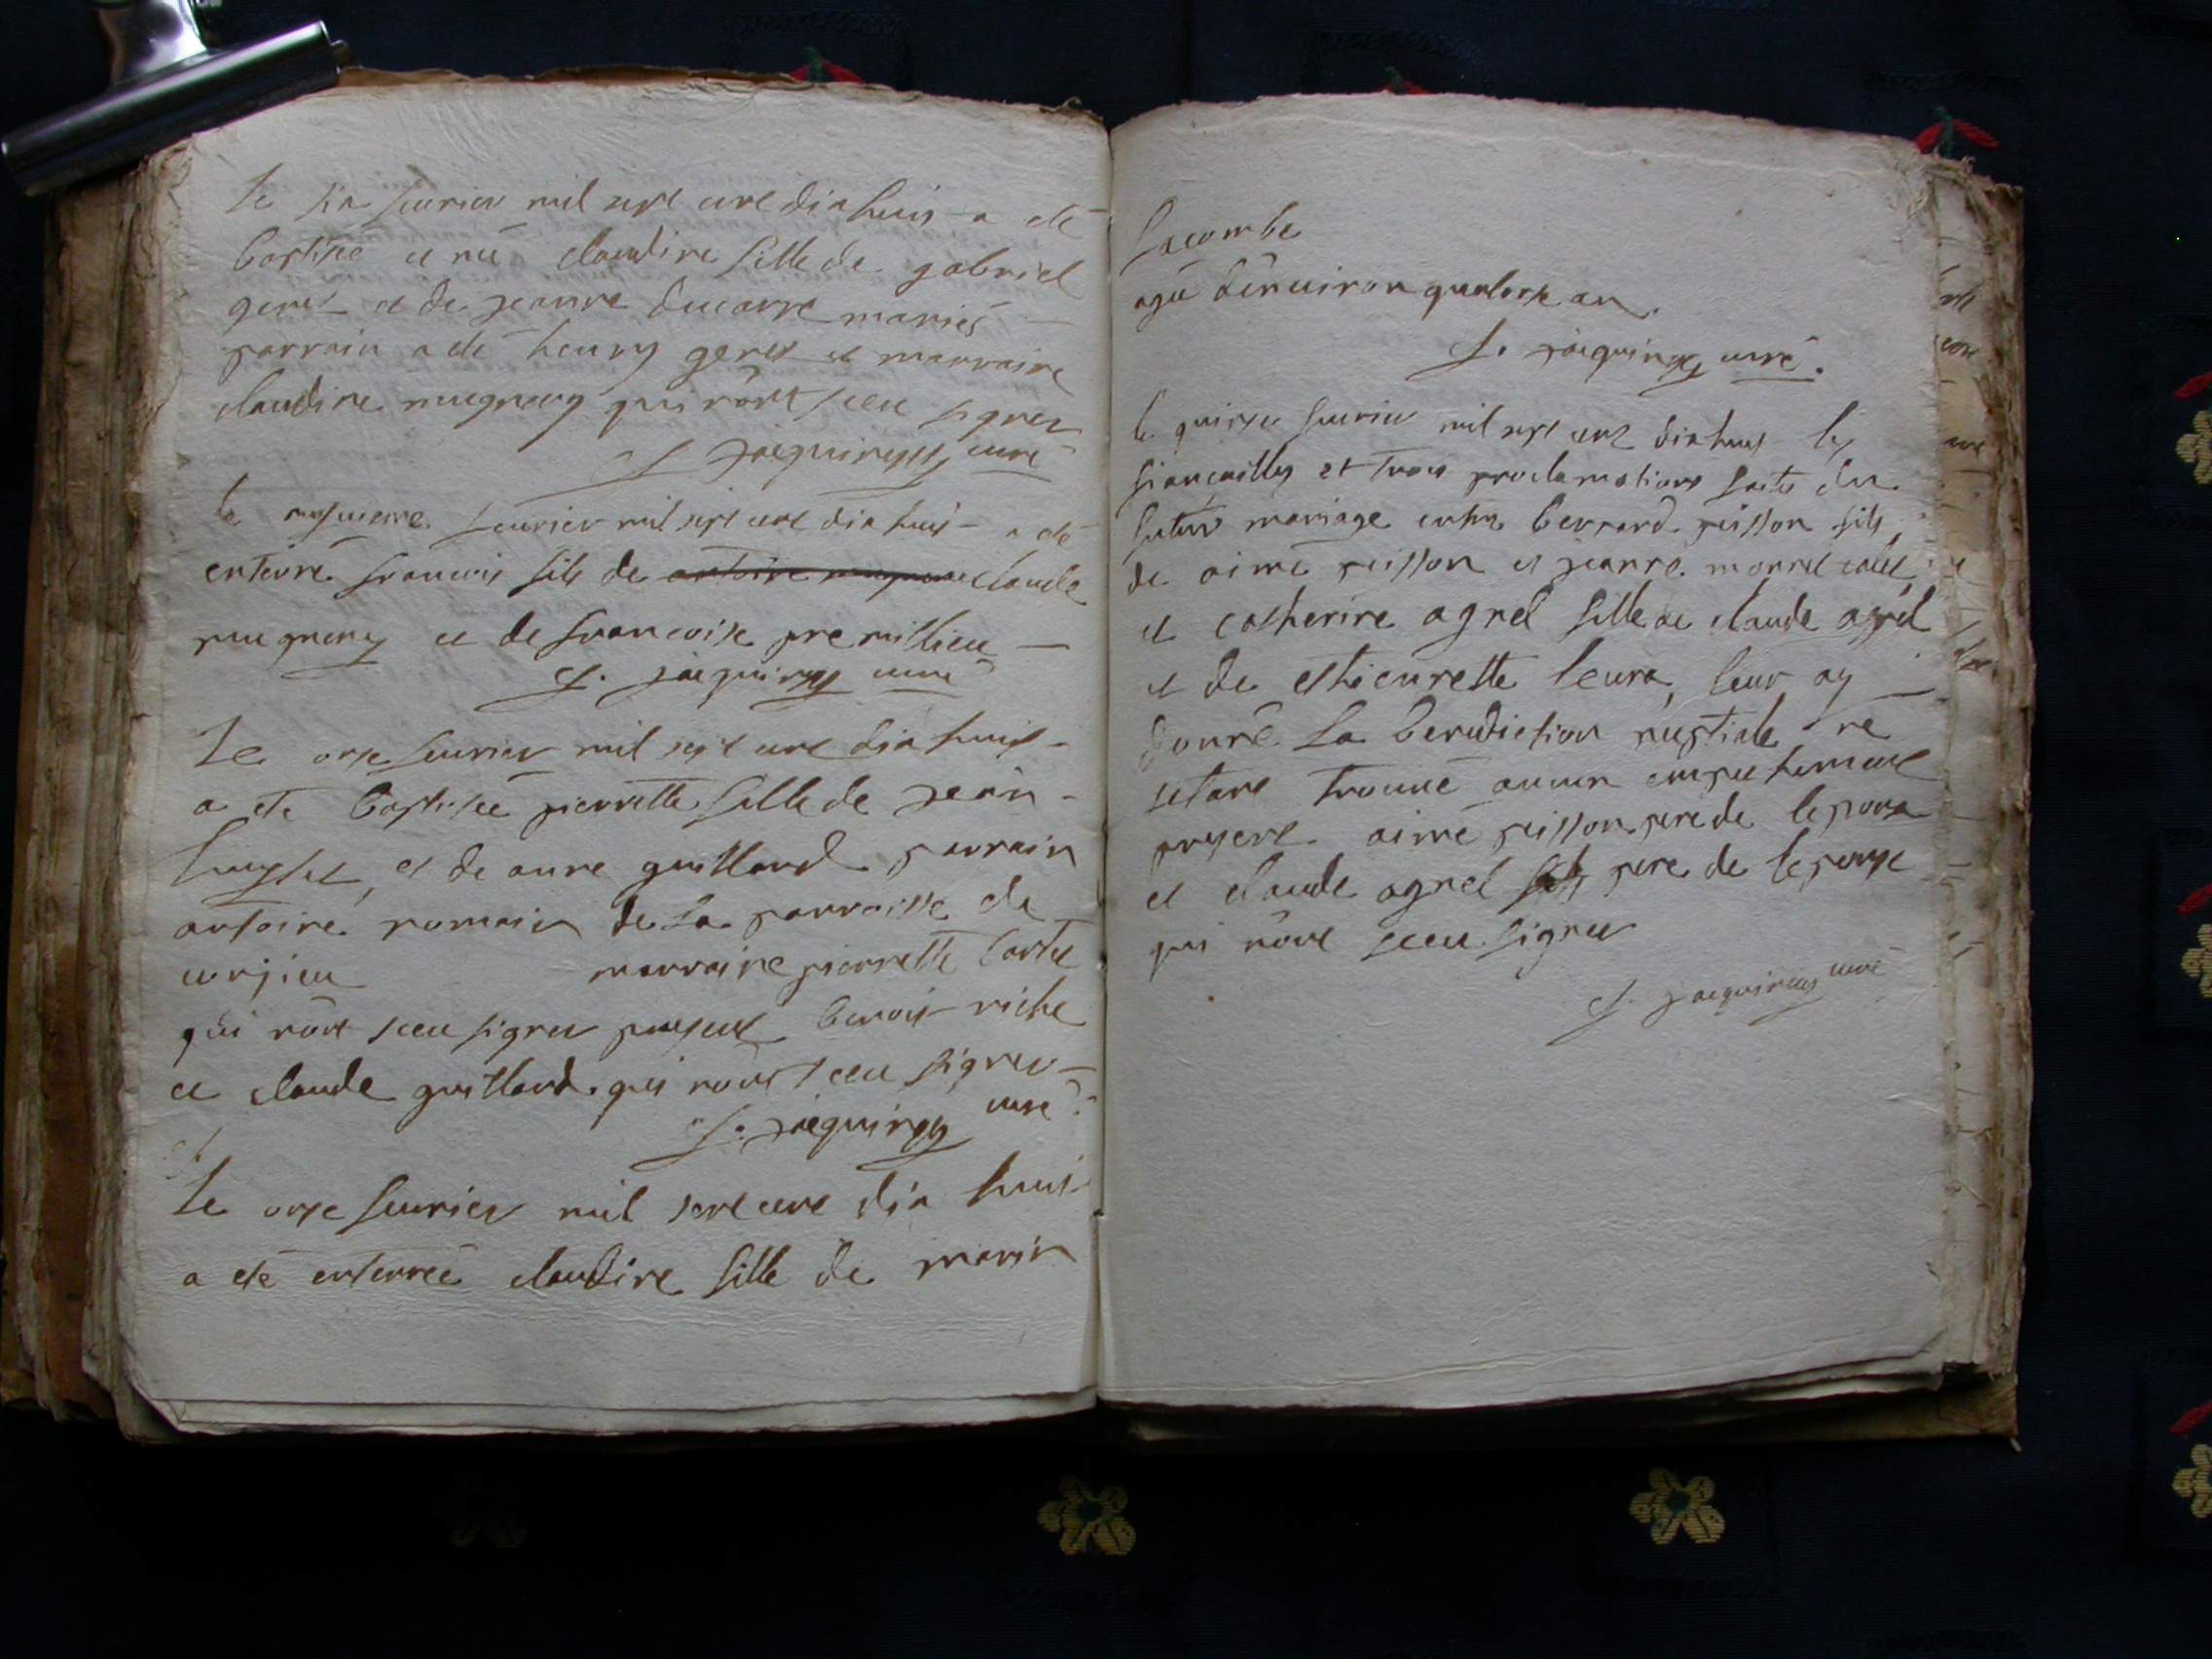 Le six feurier mil sept cent dix huit a eté
baptisé et né claudine fille de gabriel
geret et de jeanne ducarre mariés
parrain a eté henry geret et marraine
claudine mugnery qui n'ont sceu signer
J. jacquinet curé
le feurier mil sept cent dix huit a eté
enterré francois fils de claude
mugnery et de francoise premillieu
J. jacquinet curé
Le onze feurier mil sept cent dix huit
a eté baptisée pierrette fille de jean
et de anne guillard parrain
antoine romain de la parroisse de
curjieu marraine pierrette
qui n'ont sceu signer present benoit riche
et claude guillard qui n'ont sceu signer
J. jacquinet curé
Le onze feurier mil sept cent dix huit
a eté enterrée claudine fille de marin
lacombe
agée d'enuiron quatorze an.
J. jacquinet curé.
le quinze feurier mil sept cent dix huit les
fiancailles et trois proclamations faites du
futur mariage entre bernard peisson fils
de aimé peisson et jeanne
et catherine agrel fille de claude agrel
et de esthieurette leur ay
donné la benediction nuptiale ne
setant trouué aucun empechement
present aimé peisson pere de lepoux
et claude agrel pere de lepouse
qui n'ont sceu signer
J. jacquinet curé